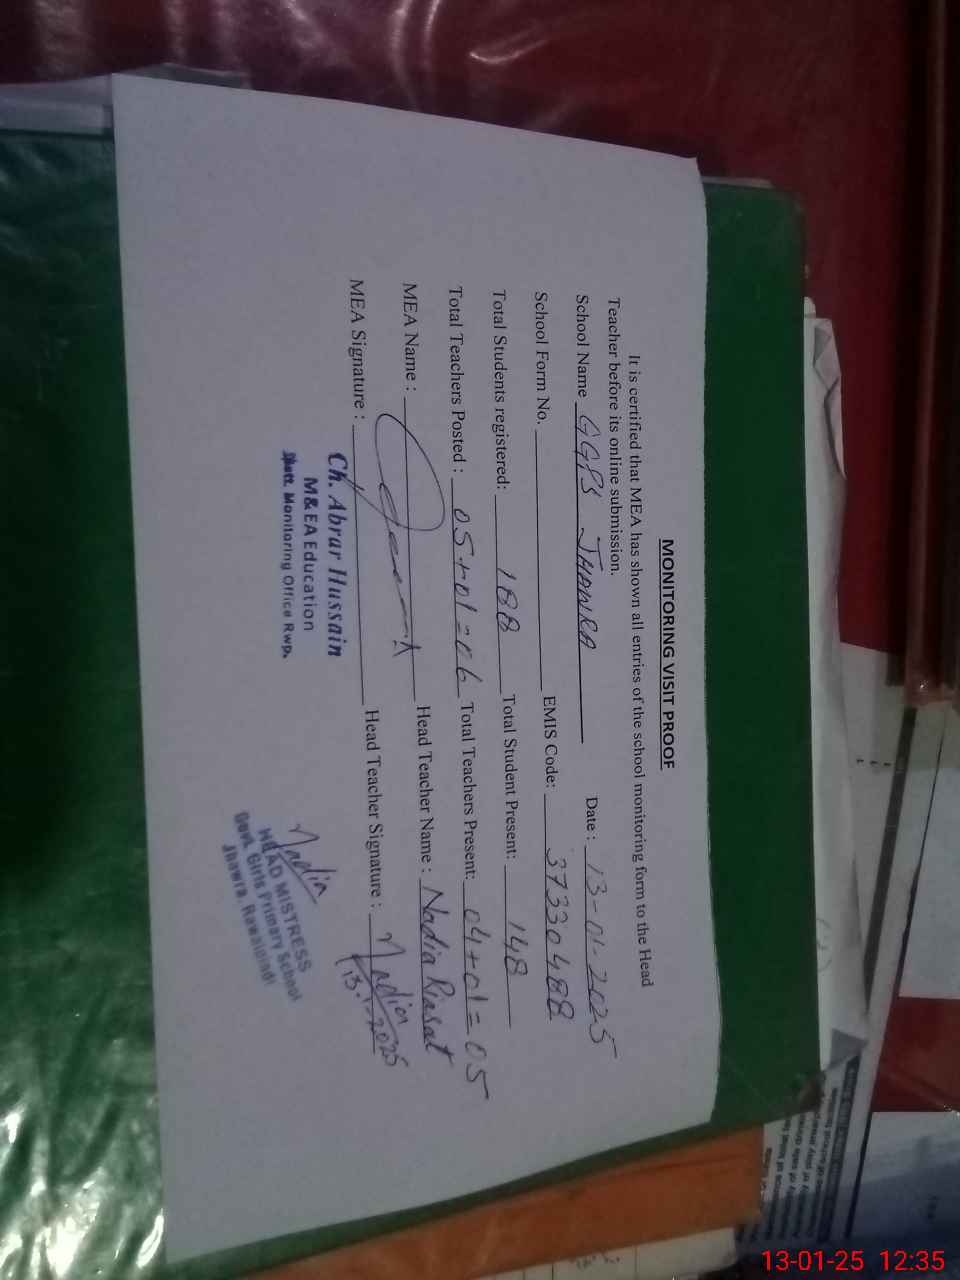 MONITORING VISIT PROOF
It is certified that MEA has shown all entries of the school monitoring form to the Head
Teacher before its online submission.
School Name GGPS JHAWRA Date : 13-01-2025
School Form No. EMIS Code: 37330488
Total Students registered: 188 Total Student Present: 148
Total Teachers Posted : 05+01=06 Total Teachers Present: 04+01=05
MEA Name : Head Teacher Name : Nadia Riasat
MEA Signature : Head Teacher Signature : Nadia
13.1.2025
Ch. Abrar Hussain
M&EA Education
Distt. Monitoring Office Rwp.
Nadia
HEAD MISTRESS
Govt. Girls Primary School
Jhawra, Rawalpindi
13-01-25 12:35